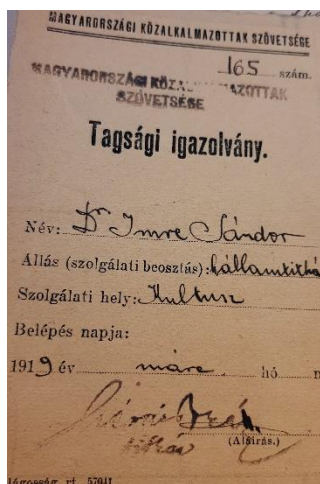 MAGYARORSZÁGI KÖZALKALMAZOTTAK SZÖVETSÉGE
165 szám.
MAGYARORSZÁGI KÖZALKALMAZOTTAK
SZÖVETSÉGE
Tagsági igazolvány.
Név: Dr Imre Sándor
Állás (szolgálati beosztás):
Szolgálati hely: Kultusz
Belépés napja:
1919 év márc. hó
titkár
(Aláírás.)